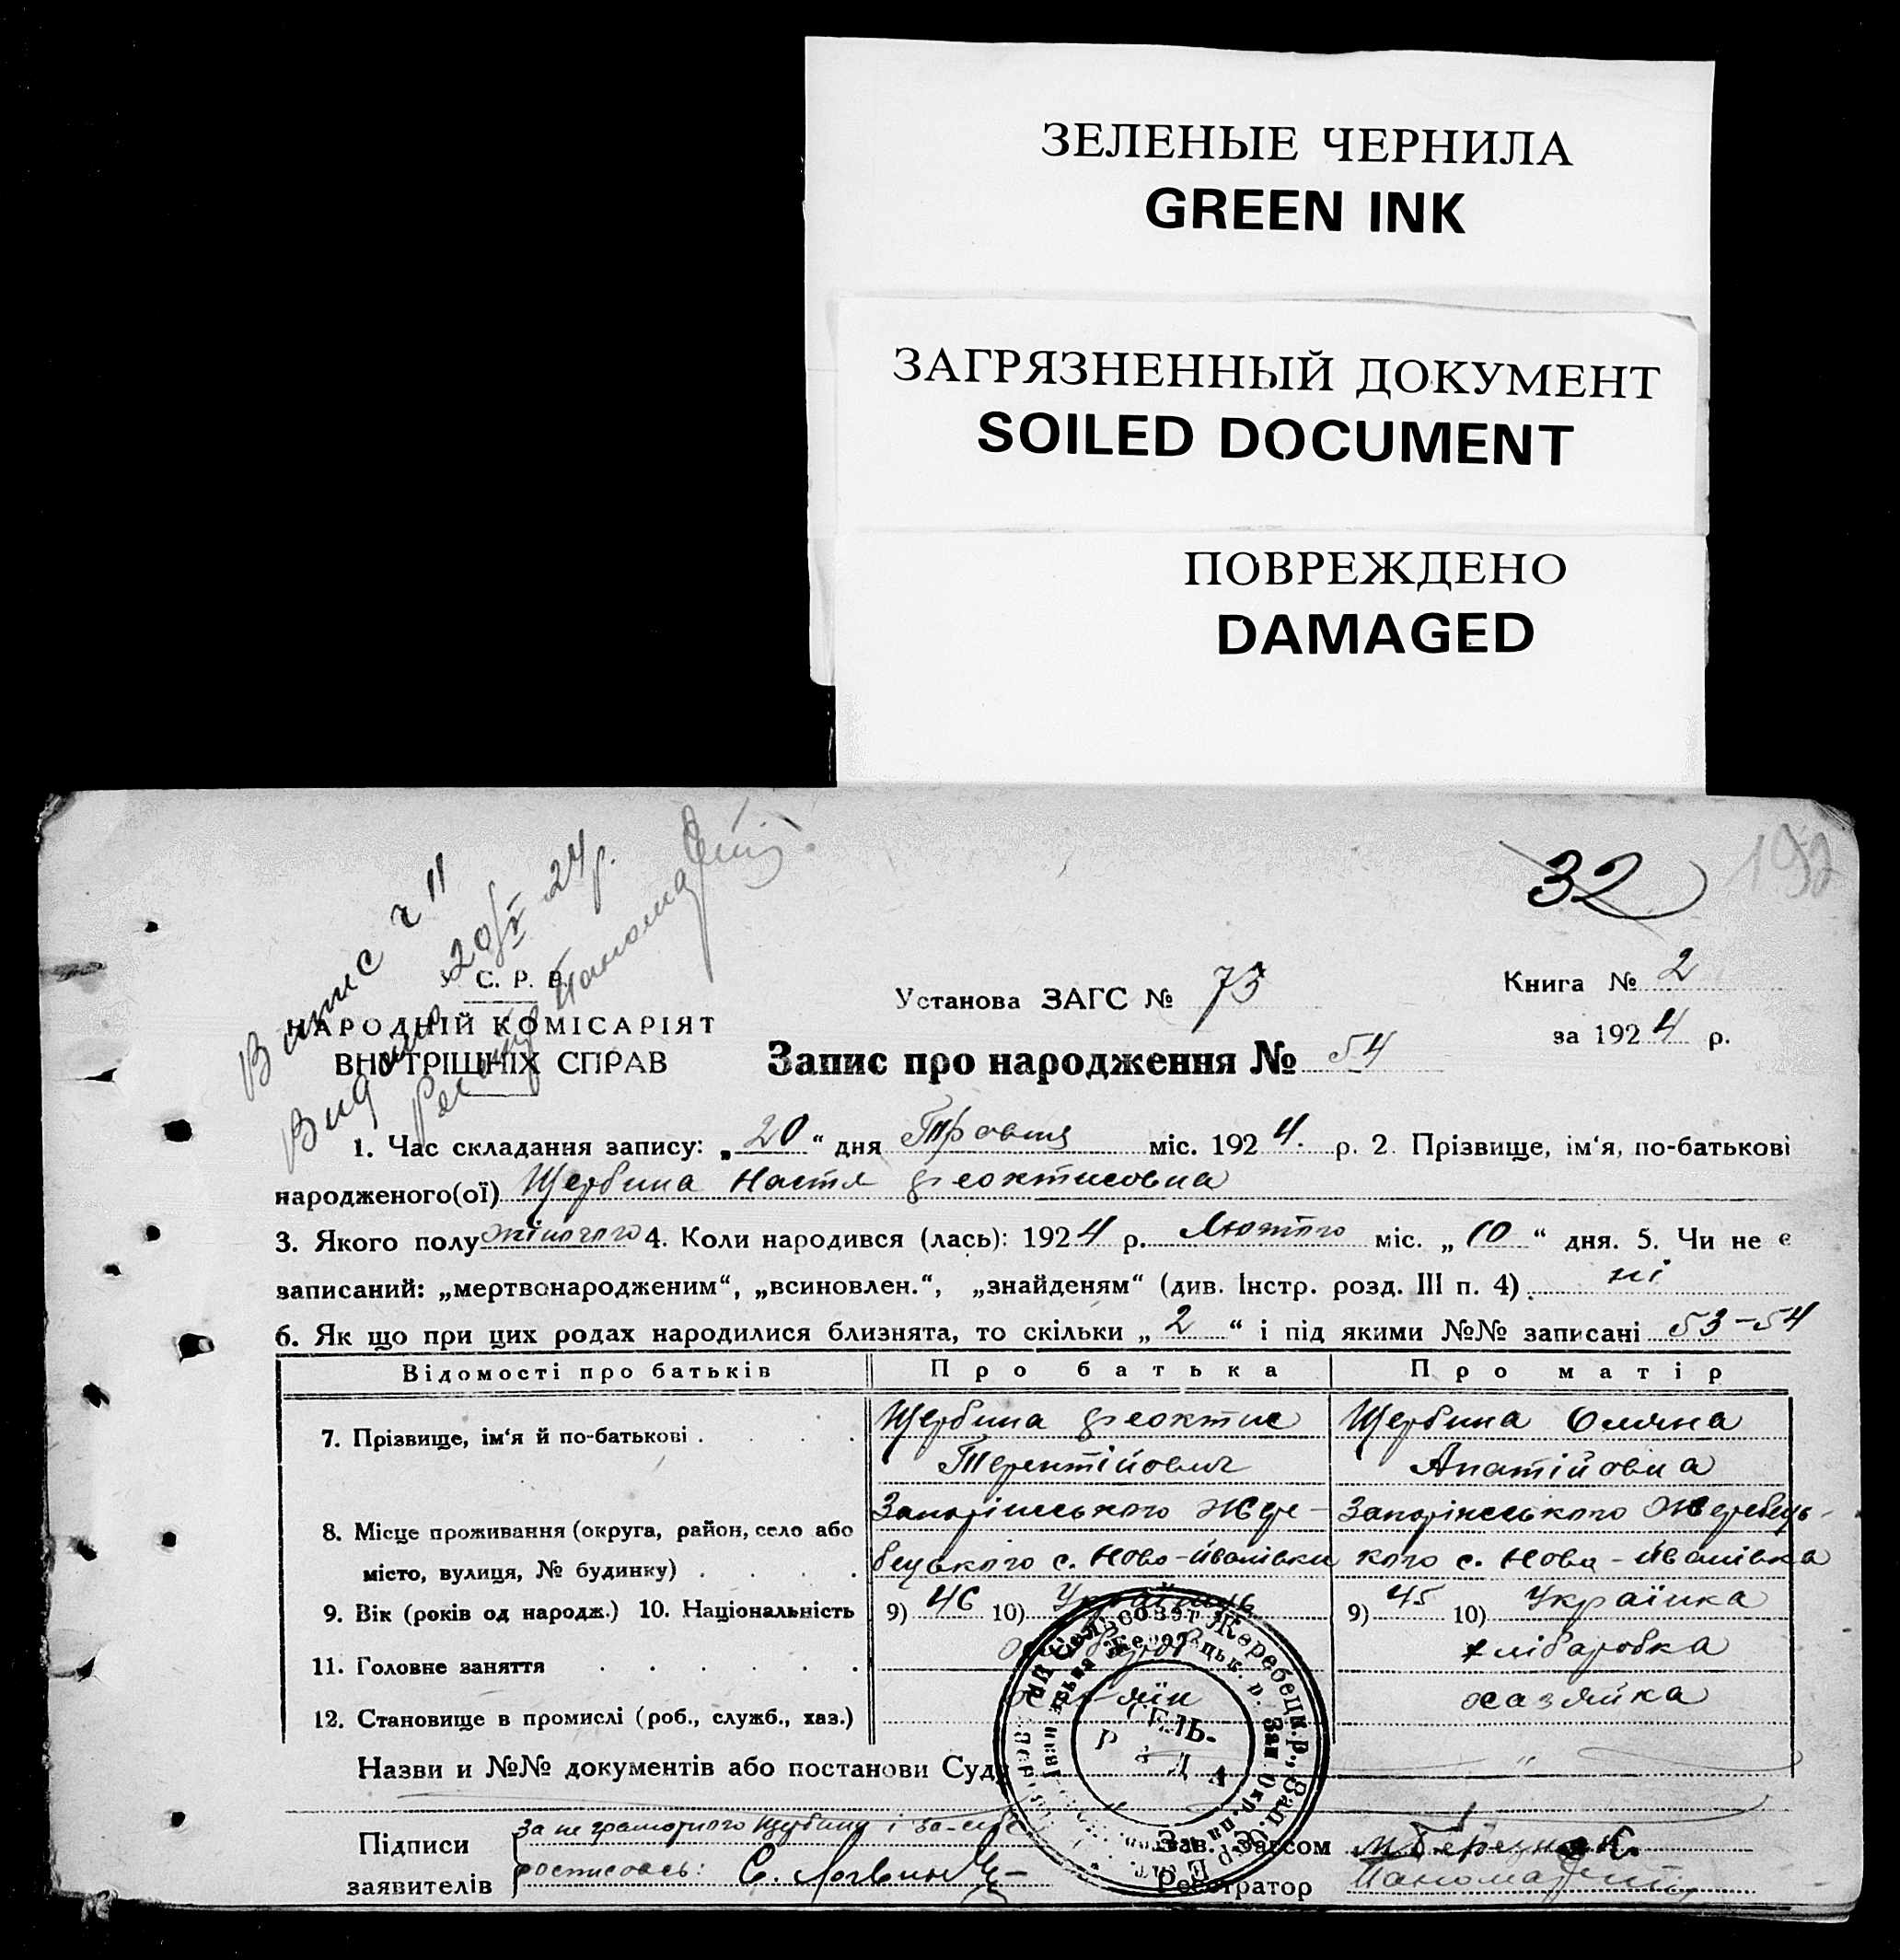 ЗЕЛЕНЫЕ ЧЕРНИЛА
GREEN INK
ЗАГРЯЗНЕННЫЙ ДОКУМЕНТ
SOILED DOCUMENT
ПОВРЕЖДЕНО
DAMAGED
32 192
Випис ч 11
Видано 20/V 24 р.
С. Р. Р.
НАРОДНІЙ КОМІСАРІЯТ
ВНУТРІШНІХ СПРАВ
Установа ЗАГС № 73
Книга № 2
за 1924 р.
Запис про народження № 54
1. Час складання запису: „20“ дня Травня міс. 1924. р. 2. Прізвище, ім'я, по-батькові
народженого(ої) Щербина Настя Феоктисовна
3. Якого полу жіночого 4. Коли народився (лась): 1924 р. Лютого міс. „10“ дня. 5. Чи не є
записаний: „мертвонародженим“, „всиновлен.“, „знайденям“ (див. Інстр. розд. III п. 4) ні
6. Як що при цих родах народилися близнята, то скільки „2“ і під якими №№ записані 53-54
Відомості про батьків Про батька Про матір
7. Прізвище, ім'я й по-батькові Щербина Феоктис Щербина
Терентійович
8. Місце проживання (округа, район, село або Запоріжського Жере- Запоріжського Жеребець-
місто, вулиця, № будинку) бецького с. Ново-Іванівки кого с. Ново-Іванівка
9. Вік (років од народж.) 10. Національність 9) 46 10) Українець 9) 45 10) Українка
11. Головне заняття хліборобка
12. Становище в промислі (роб., служб., хаз.) хазяїн хазяйка
СЕЛЬ-
РАДА
Назви и №№ документів або постанови Суду
Підписи за неграмотного Щербину і за себе Зав. Загсом
заявителів росписовсь: Реєстратор